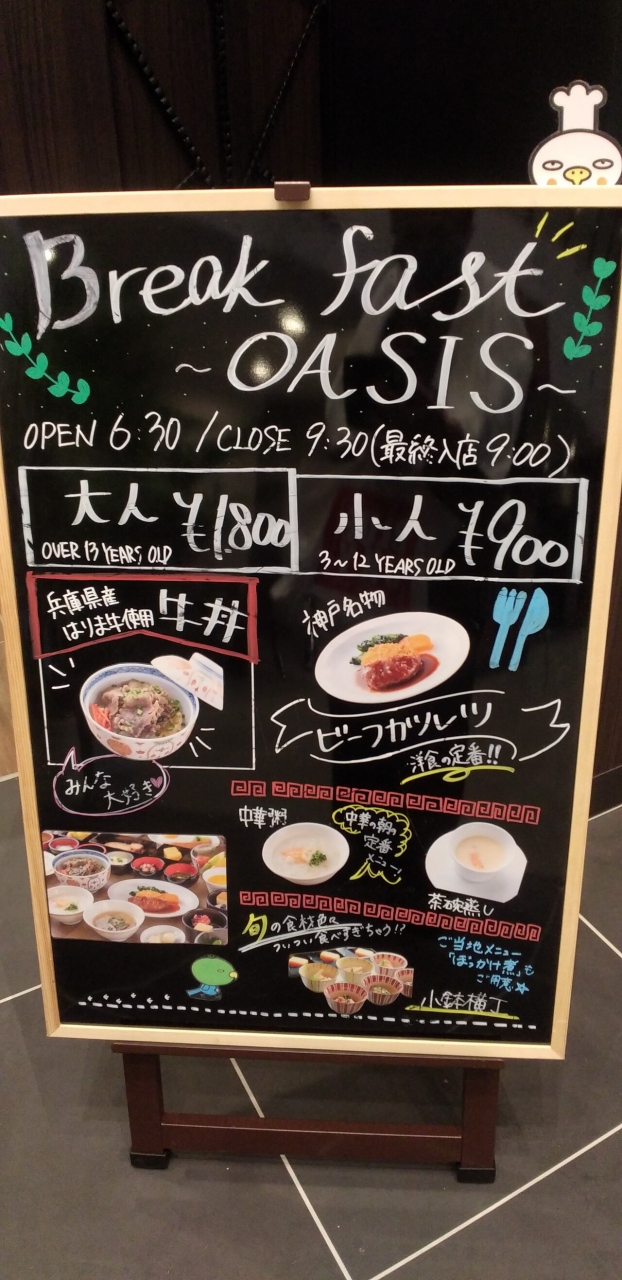 Break fast
~OASIS~
OPEN 6:30 / CLOSE 9:30(最終入店9:00)
大人 ¥1,800
OVER 13 YEARS OLD
小人 ¥900
3~12 YEARS OLD
兵庫県産
はりま牛使用
牛丼
神戸名物
ビーフカツレツ
洋食の定番!!
みんな
大好き
中華粥
中華の朝の
定番
メニュー!
茶碗蒸し
旬の食材に
ついつい食べすぎちゃう!?
ご当地メニュー
「ぼっかけ煮」も
ご用意☆
小鉢横丁